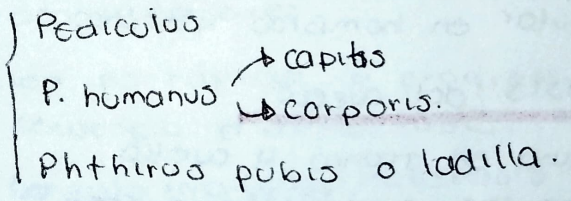 Pediculus
P. humanus → capitis
↳ corporis.
Phthirus pubis o ladilla.